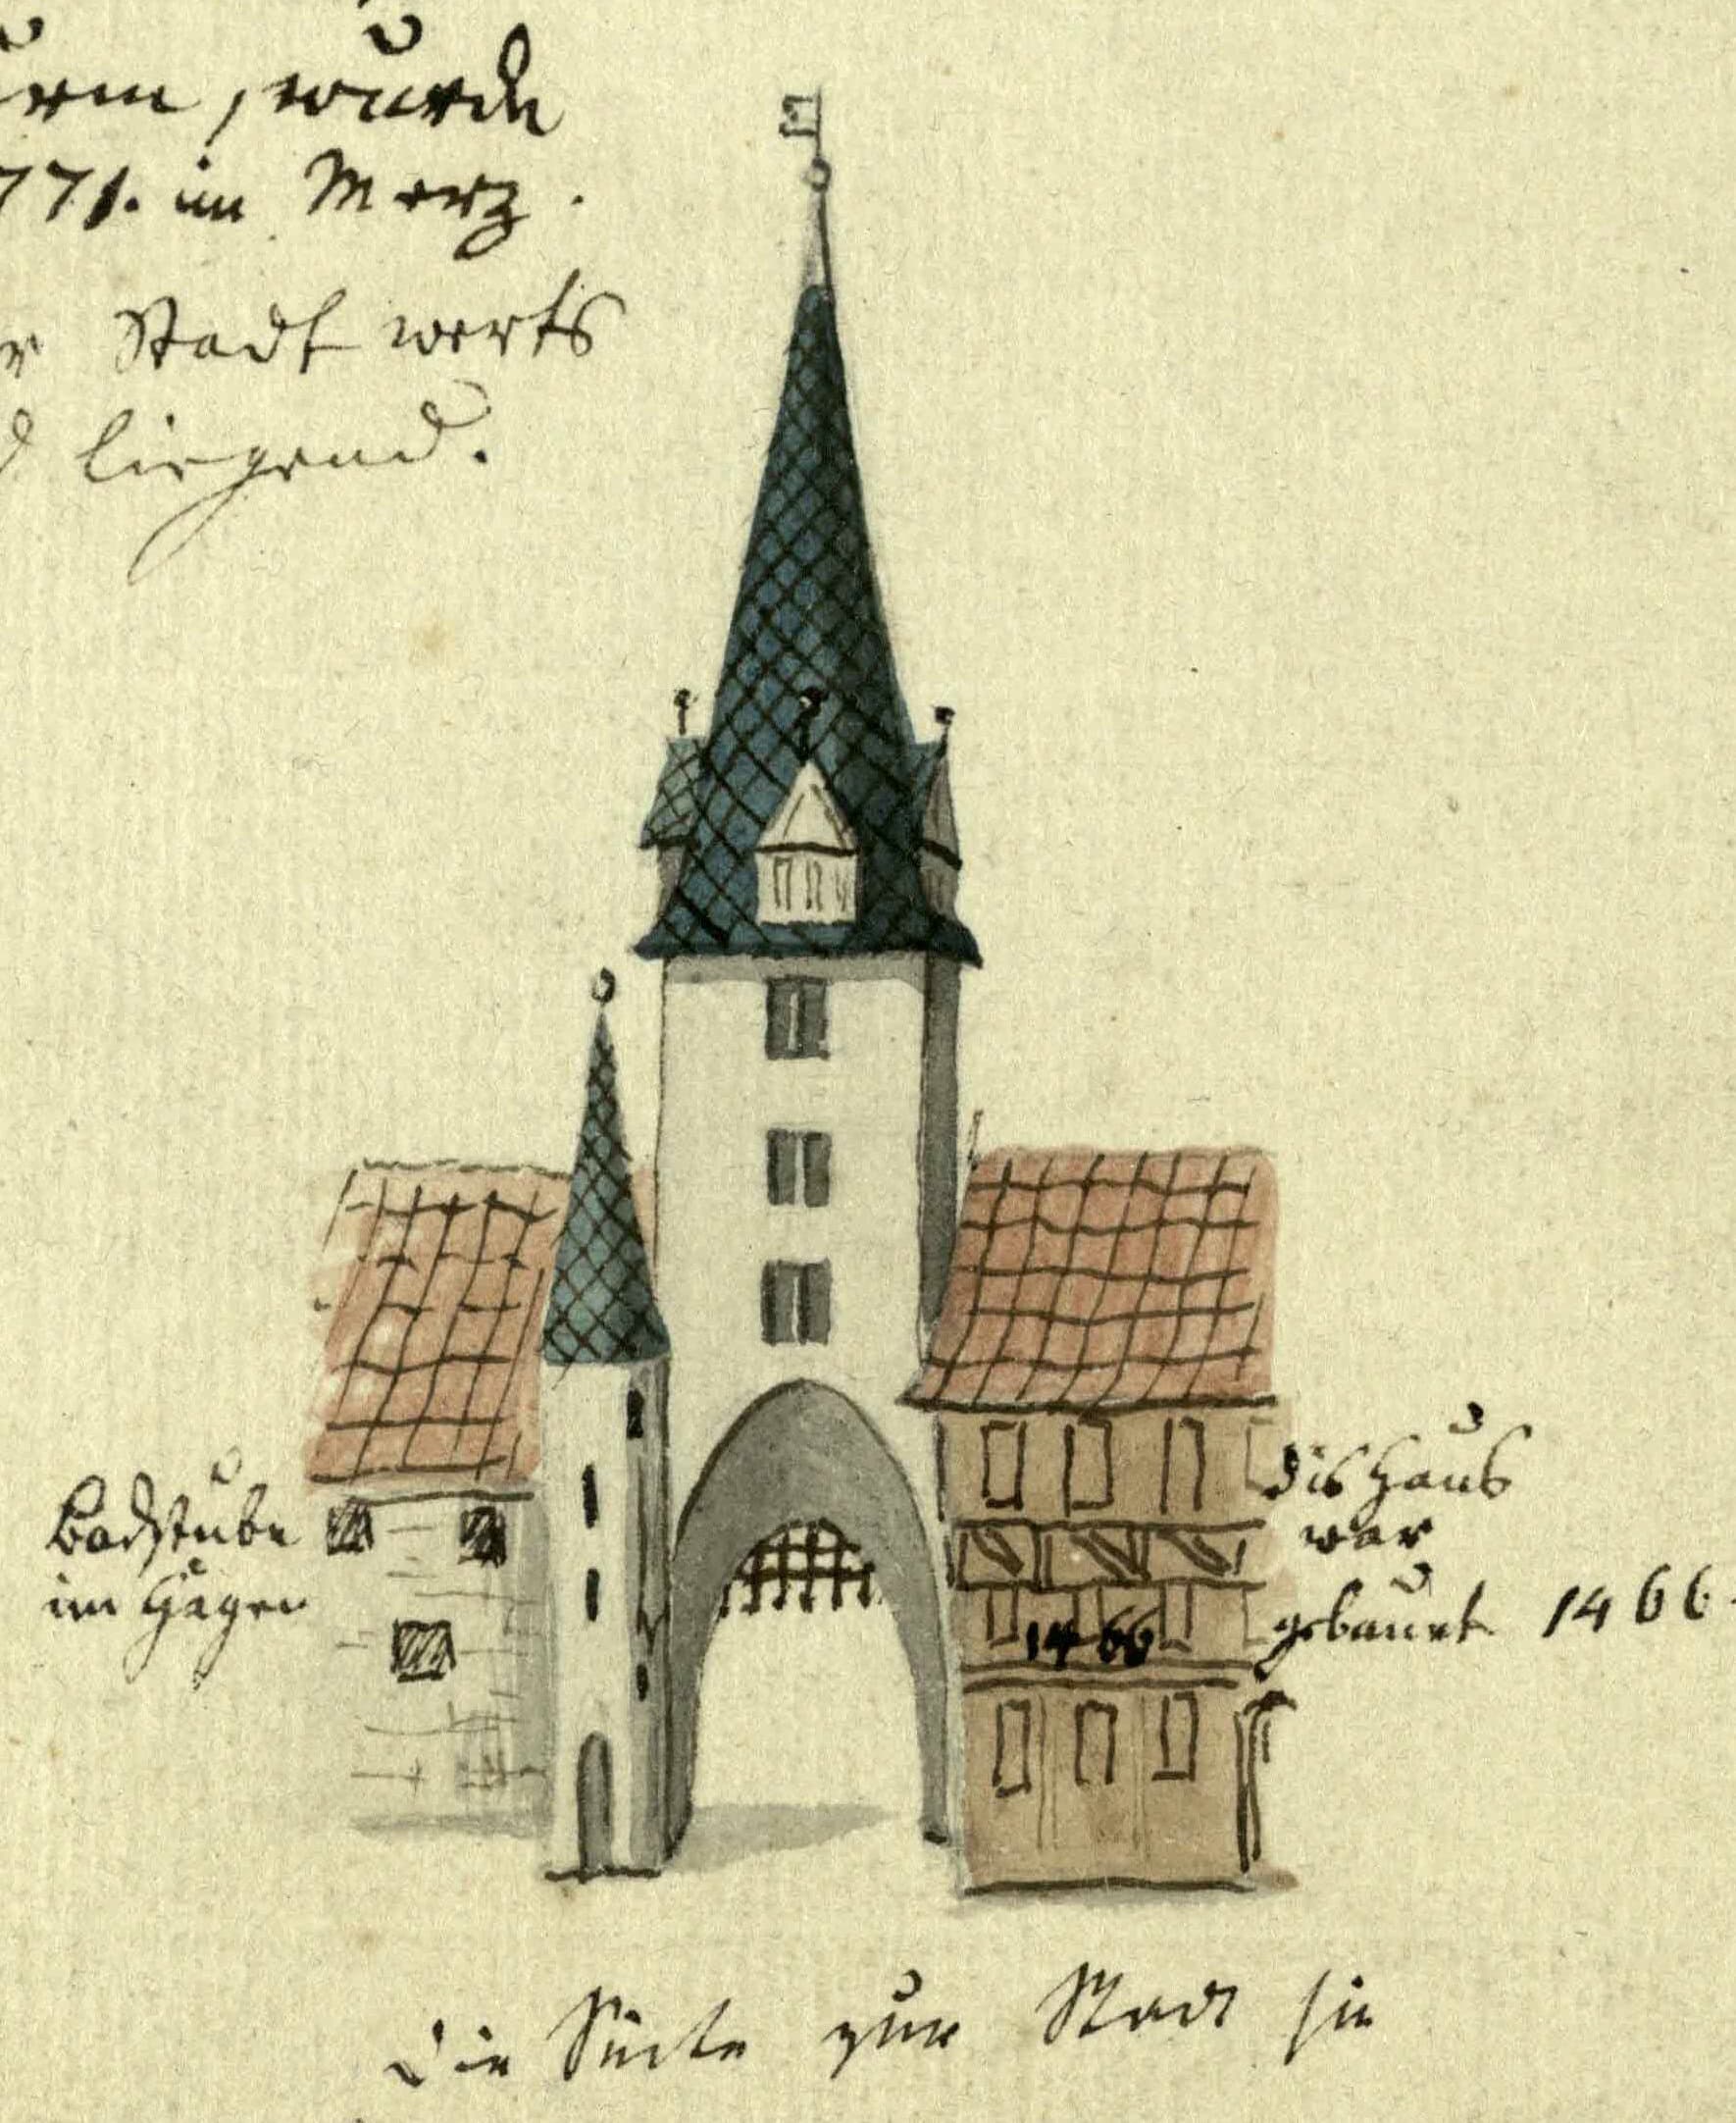 urm, wurde
771. im Merz.
r Stadt werts
d liegend.
Badstube
im Hagen
dis Haus
war
gebauet 1466.
1466
die Seite zur Stadt hin